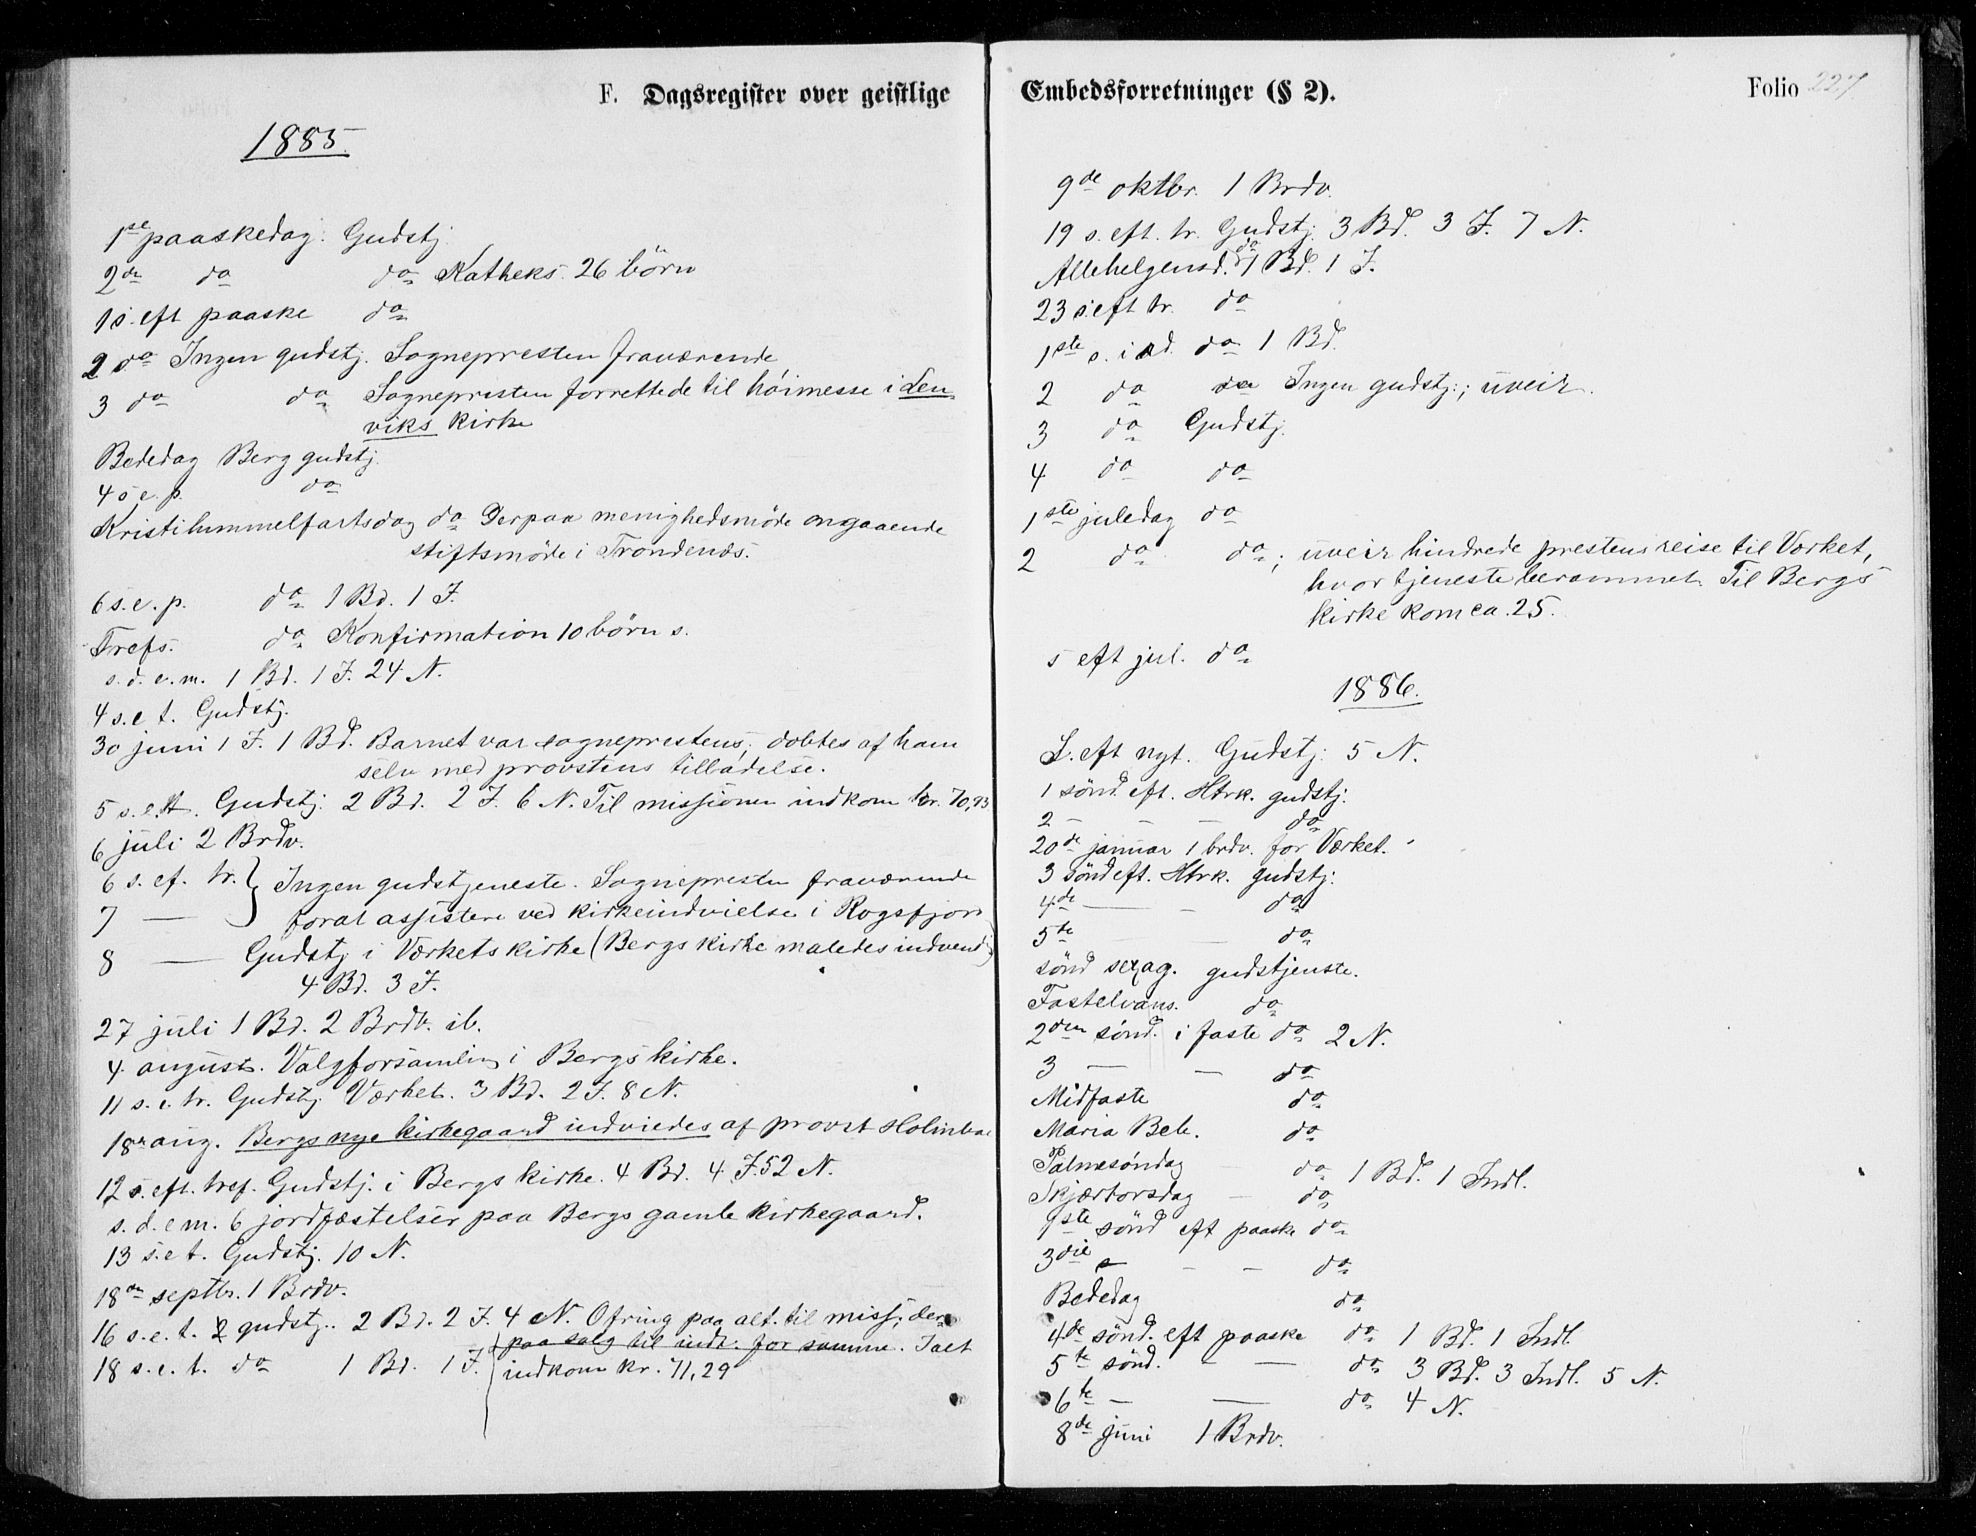 F. Dagsregister over geistlige
1885.
1ste paaskedag. Gudstj.
2de do do Katheks. 26 börn
1 s. eft paaske do
2 do Ingen gudstj. Sognepresten fraværende
3 do do Sognepresten forrettede til höimesse i Len
viks kirke
Bededag Berg gudstj.
4 s e. p. do
Kristihimmelfartsdag do Derpaa menighedsmöde angaaende
stiftsmöde i Trondenæs.
6 s. e. p. do 1 Bd. 1 I.
Trefs. do Konfirmation 10 börn s.
s. d. e. m. 1 Bd. 1 I. 24 N.
4 s. e t. Gudstj.
30 juni 1 I. 1 Bd. Barnet var sogneprestens; döbtes af ham
selv med provstens tilladelse.
5 s. e tr. Gudstj. 2 Bd. 2 I. 6 N. Til missionen indkom kr. 70,93
6 juli 2 Brdv.
6 s. ef. tr. } Ingen gudstjeneste. Sognepresten fraværende
7 — forat assistere ved kirkeindvielse i Rogsfjord
8 — Gudstj i Værkets kirke (Bergs kirke maledes indvend
4 Bd. 3 I.
27 juli 1 Bd. 2 Brdv. ib.
4 august. Valgforsamling i Bergs kirke.
11 s. e. tr. Gudstj. Værket. 3 Bd. 2 I. 8 N.
18 aug. Bergs nye kirkegaard indviedes af provst Holmboe
12 s. eft. tref. Gudstj. i Bergs kirke. 4 Bd. 4 I. 52 N.
s. d. e m. 6 jordfæstelser paa Bergs gamle kirkegaard.
13 s. e t. Gudstj. 10 N.
18de septbr. 1 Brdv.
16 s. e. t. gudstj. 2 Bd. 2 I. 4 N. Ofring paa alt. til miss;
paa salg til indt. for samme. Ialt
18 s. e. t. do 1 Bd. 1 I. indkom kr. 71,29
Embedsforretninger (§ 2).
Folio 227
9de oktbr. 1 Brdv.
19 s. eft. tr. Gudstj. 3 Bd. 3 I. 7 N.
Allehelgensd. do 1 Bd. 1 I.
23 s eft tr. do
1ste s. i ad. do 1 Bd.
2 do Ingen gudstj.; uveir.
3 do Gudstj.
4 do do
1ste juledag do
2 do do; uveir hindrede prestens reise til Værket,
hvor tjeneste berammet. Til Bergs
kirke kom ca. 25.
s eft jul. do
1886.
S. eft nyt. Gudstj. 5 N.
1 sönd. eft. Htrk. gudstj.
2 — — — do
20de januar 1 brdv. for Værket.
3 sönd eft. Htrk. gudstj.
4de — — do
5te do
sönd sexag. gudstjenste.
Fastelvans. do
2den sönd. i faste do 2 N.
3 — — do
Midfaste do
Maria Beb. do
Palmesöndag do 1 Bd. 1 Indl.
Skjærtorsdag — do
1ste sönd eft paaske do
3die — — do
Bededag do
4de sönd. eft paaske do 1 Bd. 1 Indl
5te sönd. — — do 3 Bd. 3 Indl. 5 N.
6te — — do 4 N.
8de juni 1 Brdv.